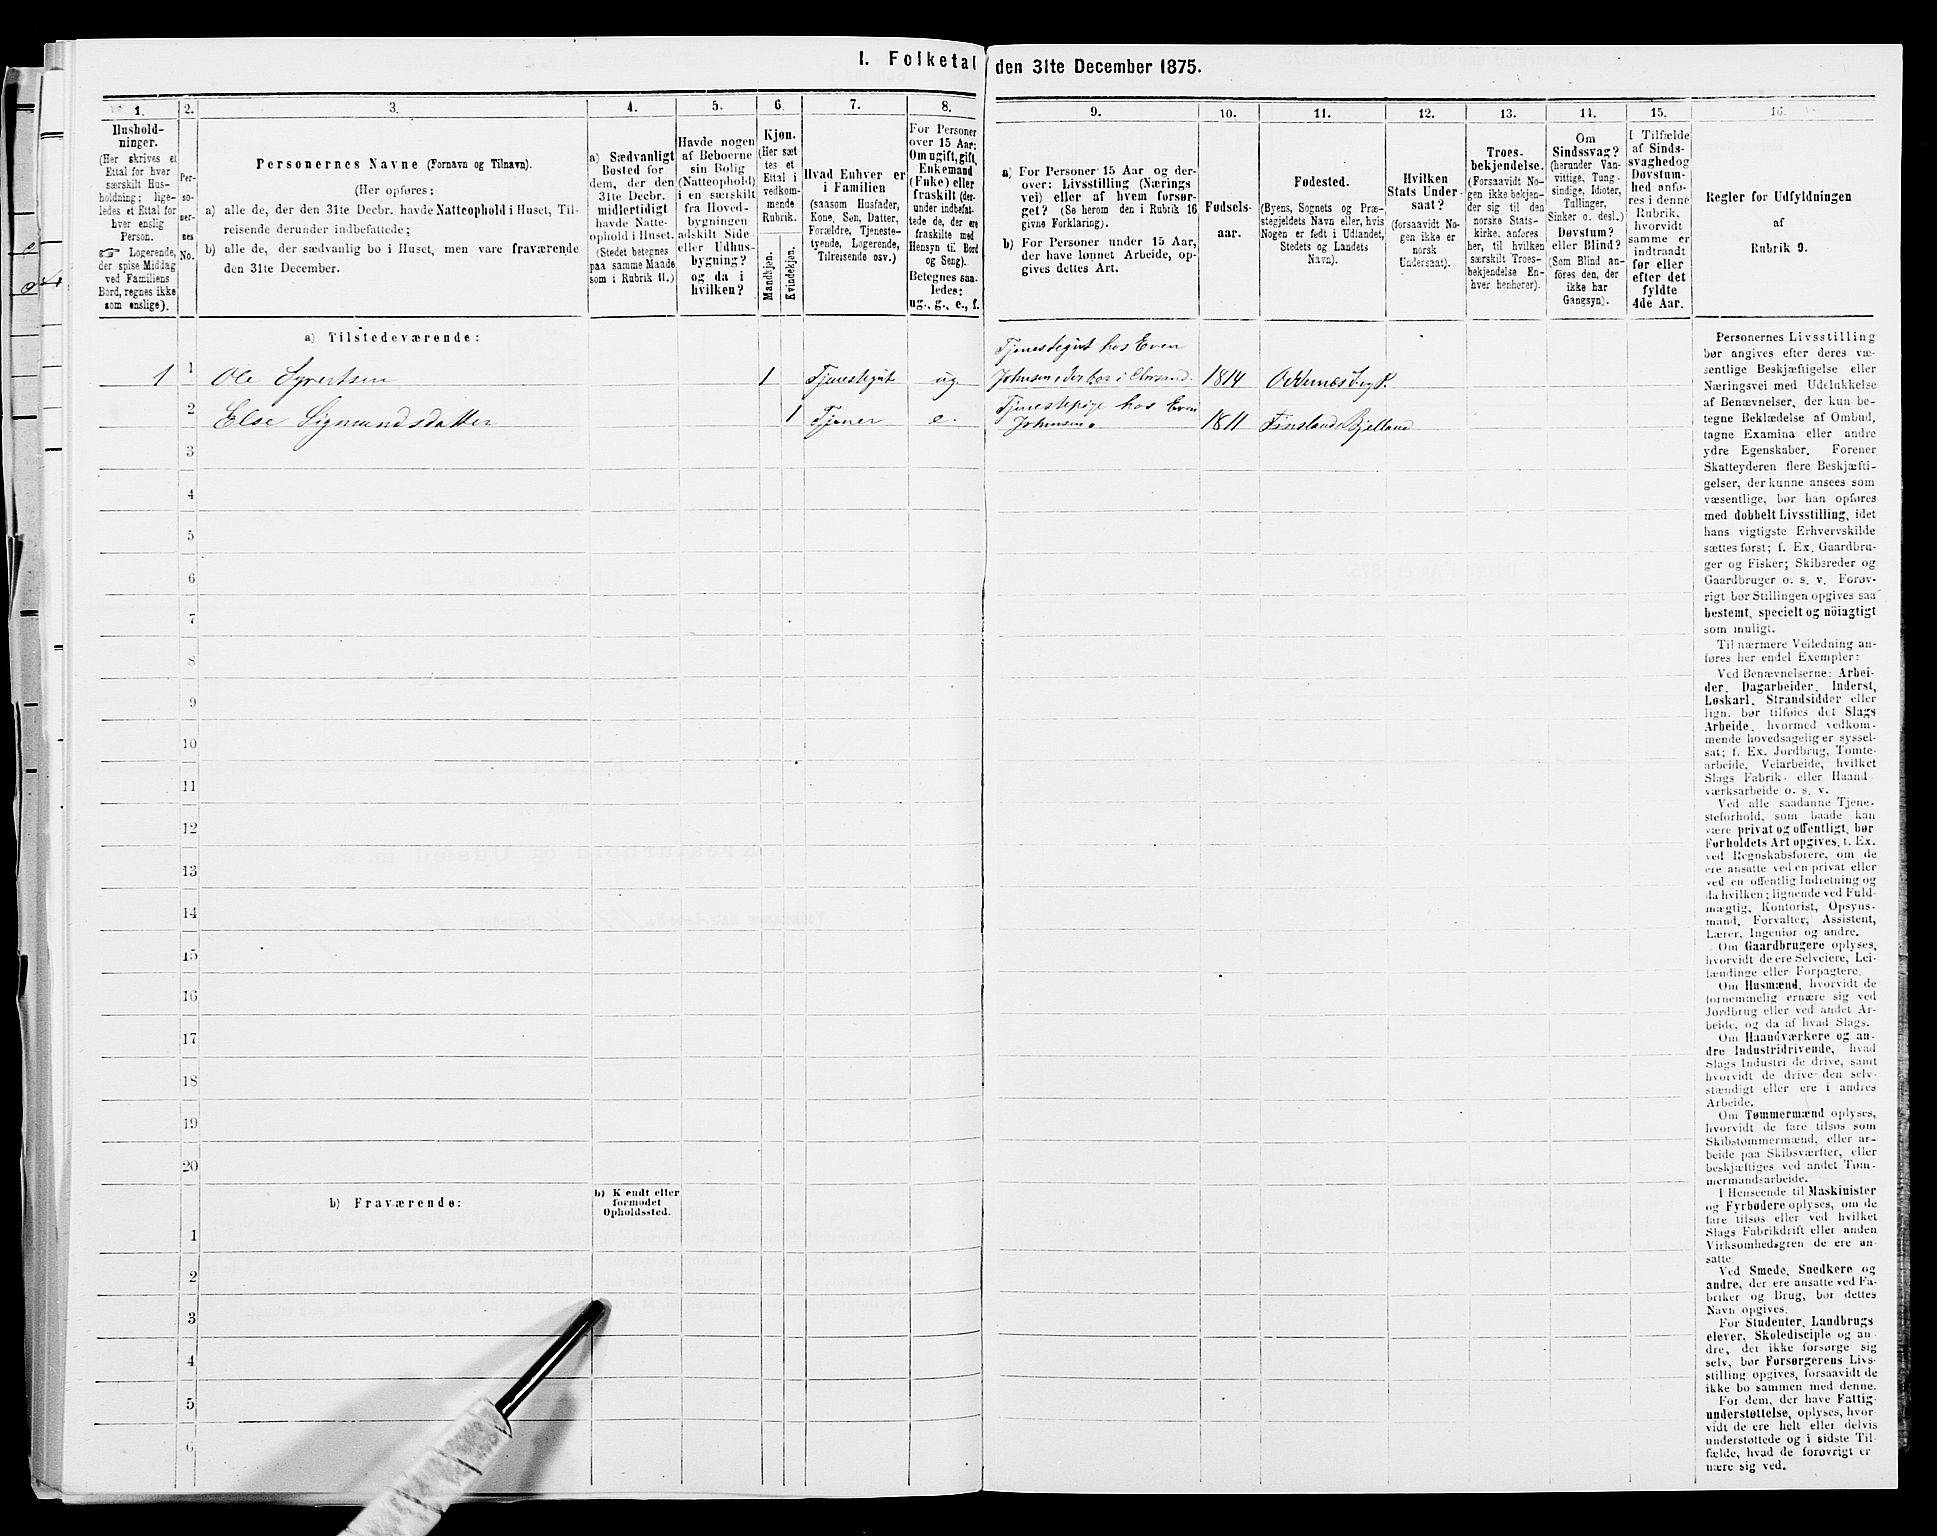 I. Folketal den 31te December 1875.
1.
Hushold-
ninger.
(Her skrives et
Ettal for hver
særskilt Hus-
holdning; lige-
ledes et Ettal for
hver enslig
Person.
☞ Logerende,
der spise Middag
ved Familiens
Bord, regnes ikke
som enslige).
2.
Per-
so-
ner-
nes
No.
3.
Personernes Navne (Fornavn og Tilnavn).
(Her opføres:
a) alle de, der den 31te Decbr. havde Natteophold i Huset, Til-
reisende derunder indbefattede;
b) alle de, der sædvanlig bo i Huset, men vare fraværende
den 31te December.
4.
a) Sædvanligt
Bosted for
dem, der den
31te Decbr.
midlertidigt
havde Natte-
ophold i Huset.
(Stedet betegnes
paa samme Maade
som i Rubrik 11.)
5.
Havde nogen
af Beboerne
sin Bolig
(Natteophold)
i en særskilt
fra Hoved-
bygningen
adskilt Side-
eller Udhus-
bygning?
og da i
hvilken?
6.
Kjøn.
(Her sæt
tes et
Ettal i
vedkom-
mende
Rubrik.
Mandkjøn.
Kvindekjøn.
7.
Hvad Enhver er
i Familien
(saasom Husfader,
Kone, Søn, Datter,
Forældre, Tjeneste-
tyende, Logerende,
Tilreisende osv.)
8.
For Personer
over 15 Aar:
Om ugift, gift,
Enkemand
(Enke) eller
fraskilt (der-
under indbefat-
tede de, der ere
fraskilte med
Hensyn til Bord
og Seng).
Betegnes saa-
ledes:
ug., g., e., f.
9.
a) For Personer 15 Aar og der-
over: Livsstilling (Nærings
vei) eller af hvem forsør-
get? (Se herom den i Rubrik 16
givne Forklaring).
b) For Personer under 15 Aar,
der have lønnet Arbeide, op-
gives dettes Art.
10.
Fødsels-
aar.
11.
Fødested.
(Byens, Sognets og Præ-
stegjeldets Navn eller, hvis
Nogen er født i Udlandet,
Stedets og Landets
Navn).
12.
Hvilken
Stats Under-
saat?
(forsaavidt No-
gen ikke er
norsk
Undersaat).
13.
Troes-
bekjendelse.
(Forsaavidt No-
gen ikke bekjen-
der sig til den
norske Stats-
kirke, anføres
her, til hvilken
særskilt Troes-
bekjendelse En-
hver henhører).
14.
Om
Sindssvag?
(herunder Van-
vittige, Tung-
sindige, Idioter,
Tullinger,
Sinker o. desl.)
Døvstum?
eller Blind?
(Som Blind an-
føres den, der
ikke har
Gangsyn).
15.
I Tilfælde
af Sinds-
svaghed og
Døvstum-
hed anfø-
res i denne
Rubrik,
hvorvidt
samme er
indtraadt
før eller
efter det
fyldte
4de Aar.
16.
Regler for Udfyldningen
af
Rubrik 9.
a) Tilstedeværende:
1 1 Ole Syvertsen 1 Tjenestegut ug. Tjenestegut hos Even
Johnsen 1814 Oddernæs
2 Else Sigmundsdatter 1 Tjener e. Tjenestepige hos Even
Johnsen 1811 Finsland Bjelland
3
4
5
6
7
8
9
10
11
12
13
14
15
16
17
18
19
20
b) Fraværende:
b) Kjendt eller
formodet
Opholdssted.
1
2
3
4
5
6
Personernes Livsstilling
bør angives efter deres væ-
sentlige Beskjæftigelse eller
Næringsvei med Udelukkelse
af Benævnelser, der kun be-
tegne Beklædelse af Ombud,
tagne Examina eller andre
ydre Egenskaber. Forener
Skatteyderen flere Beskjæfti-
gelser, der kunne ansees som
væsentlige, bør han opføres
med dobbelt Livsstilling, idet
hans vigtigste Erhvervskilde
sættes først; f. Ex. Gaardbru-
ger og Fisker; Skibsreder og
Gaardbruger o. s. v. Forøv-
rigt bør Stillingen opgives saa
bestemt, specielt og nöiagtigt
som muligt.
Til nærmere Veiledning an-
føres her endel Exempler:
Ved Benævnelserne: Arbei-
der, Dagarbeider, Inderst,
Løskarl, Strandsidder eller
lign. bør tilføies det Slags
Arbeide, hvormed vedkom-
mende hovedsagelig er syssel-
sat; f. Ex. Jordbrug, Tomte-
arbeide, Veiarbeide, hvilket
Slags Fabrik- eller Haand-
værksarbeide o. s. v.
Ved alle saadanne Tjene-
steforhold, som baade kan
være privat og offentligt, bør
Forholdets Art opgives, f. Ex.
ved Regnskabsførere, om de
ere ansatte ved en privat eller
ved en offentlig Indretning og
da hvilken; lignende ved Fuld-
mægtig, Kontorist, Opsyns-
mand, Forvalter, Assistent,
Lærer, Ingeniør og andre.
Om Gaardbrugere oplyses,
hvorvidt de ere Selveiere, Lei-
lændinge eller Forpagtere.
Om Husmænd, hvorvidt de
fornemmelig ernære sig ved
Jordbrug eller ved andet Ar-
beide, og da af hvad Slags.
Om Haandværkere og an-
dre Industridrivende, hvad
Slags Industri de drive, samt
hvorvidt de drive den selv-
stændigt eller ere i andres
Arbeide.
Om Tømmermænd oplyses,
hvorvidt de fare tilsøs som
Skibstømmermænd, eller ar-
beide paa Skibsværfter, eller
beskjæftiges ved andet Tøm-
mermandsarbeide.
I Henseende til Maskinister
og Fyrbødere oplyses, om de
fare tilsøs eller ved hvilket
Slags Fabrikdrift eller anden
Virksomhedsgren de ere an-
satte.
Ved Smede, Snedkere og
andre, der ere ansatte ved Fa-
briker og Brug, bør dettes
Navn opgives.
For Studenter, Landbrugs
elever, Skoledisciple og an-
dre, det ikke forsørge sig
selv, bør Forsørgerens Livs-
stilling opgives, forsaavidt de
ikke bo sammen med denne.
For dem, der have Fattig
understøttelse, oplyses, hvor-
vidt de ere helt eller delvis
understøttede og i sidste Til-
fælde, hvad de forøvrigt er
nære sig ved.